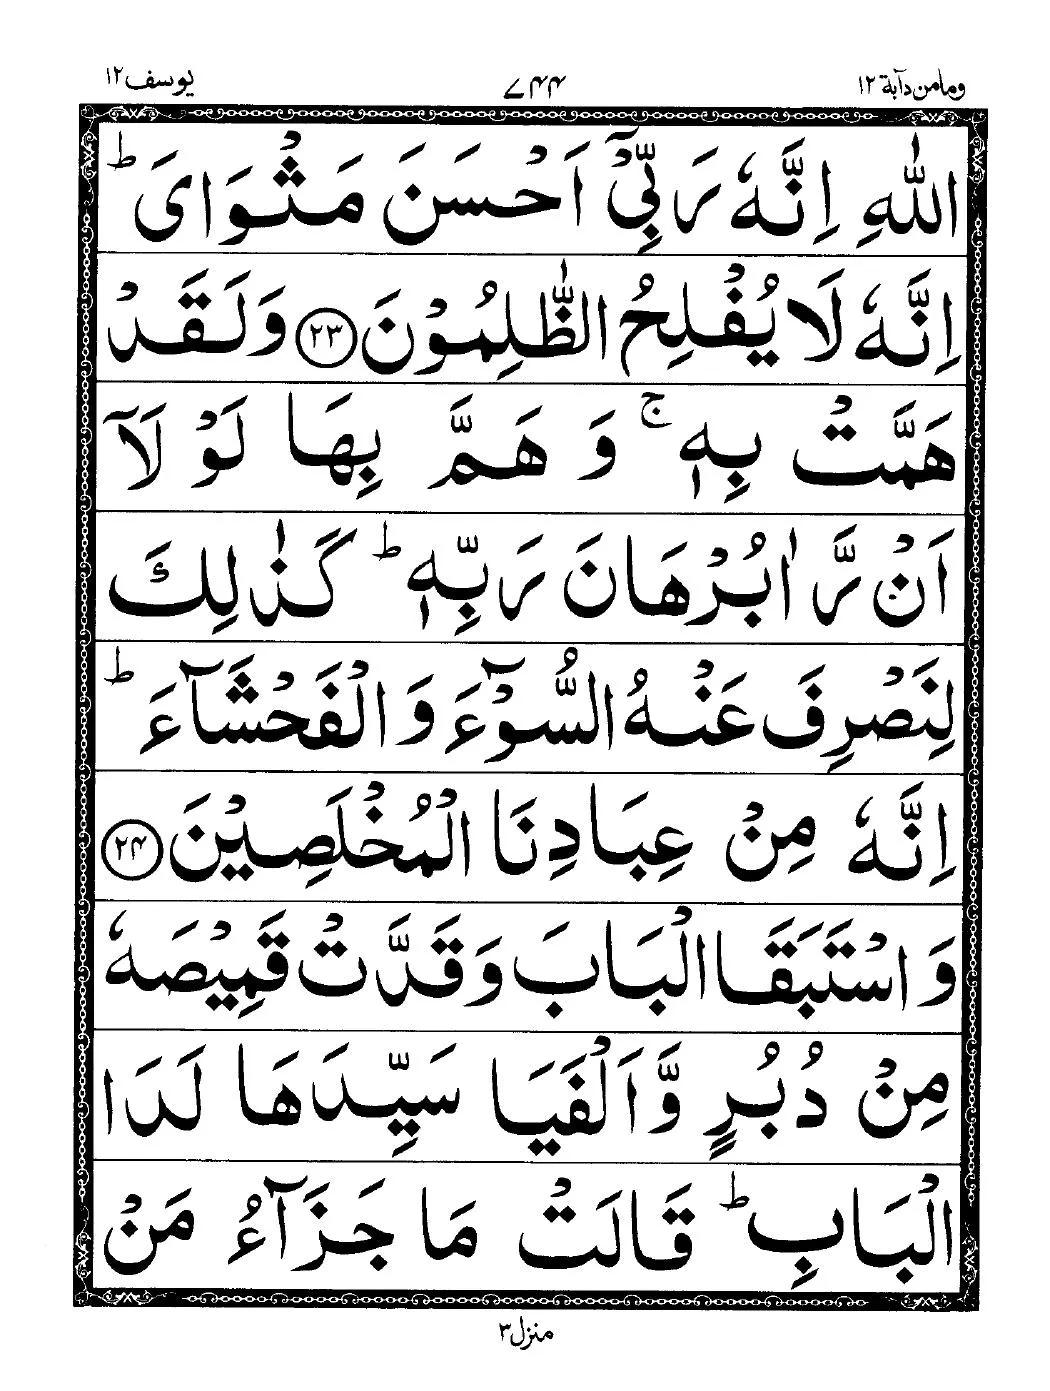 وما من دآبة ۱۲ ۷۴۴ یوسف ۱۲
اللّٰهِ اِنَّهٗ رَبِّیْۤ اَحْسَنَ مَثْوَایَ ؕ
اِنَّهٗ لَا یُفْلِحُ الظّٰلِمُوْنَ ۲۳ وَلَقَدْ
هَمَّتْ بِهٖ ۚ وَ هَمَّ بِهَا لَوْ لَاۤ
اَنْ رَّاٰ بُرْهَانَ رَبِّهٖ ؕ كَذٰلِكَ
لِنَصْرِفَ عَنْهُ السُّوْٓءَ وَ الْفَحْشَآءَ ؕ
اِنَّهٗ مِنْ عِبَادِنَا الْمُخْلَصِیْنَ ۲۴
وَ اسْتَبَقَا الْبَابَ وَ قَدَّتْ قَمِیْصَهٗ
مِنْ دُبُرٍ وَّ اَلْفَیَا سَیِّدَهَا لَدَا
الْبَابِ ؕ قَالَتْ مَا جَزَآءُ مَنْ
منزل ۳